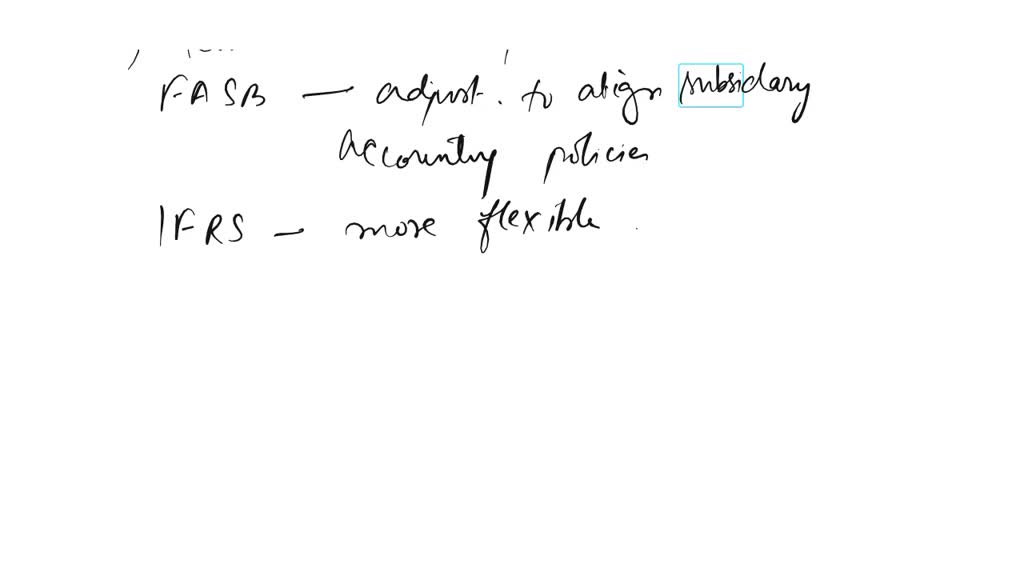 FASB — adjust. to align subsidary
Accounting policies
IFRS - more flexible.